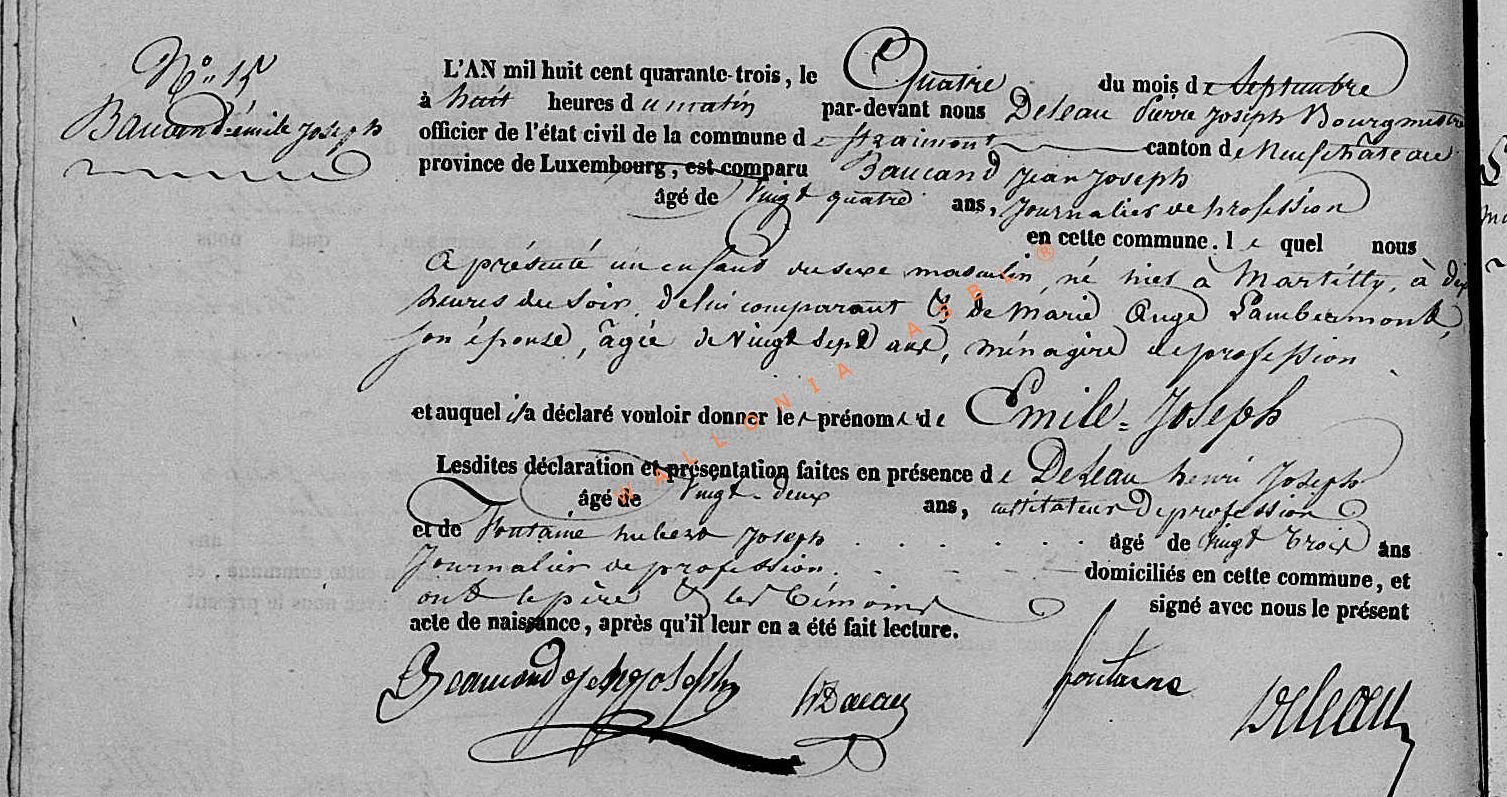 N° 15
Baucand émile Joseph
L'AN mil huit cent quarante-trois, le Quatre du mois de Septembre
à huit heures du matin par-devant nous Deleau Pierre Joseph Bourgmestre
officier de l'état civil de la commune de Straimont canton de Neufchâteau
province de Luxembourg, est comparu Baucand Jean Joseph
âgé de Vingt quatre ans, Journalier de profession
en cette commune. le quel nous
a présenté un enfant du sexe masculin, né hier à Martilly, à dix
heures du soir, de lui comparant & de Marie Ange Lambermont,
son épouse, âgée de Vingt Sept ans, ménagère de profession
et auquel il a déclaré vouloir donner les prénoms de Emile-Joseph
Lesdites déclaration et présentation faites en présence de Deleau henri Joseph
âgé de Vingt-deux ans, instituteur de profession
et de Fontaine hubert Joseph . . . . . . âgé de Vingt Trois ans
Journalier de profession. - - - domiciliés en cette commune, et
ont le père & les témoins signé avec nous le présent
acte de naissance, après qu'il leur en a été fait lecture.
Joseph
fontaine
Deleau
WALLONIA ASBL ®